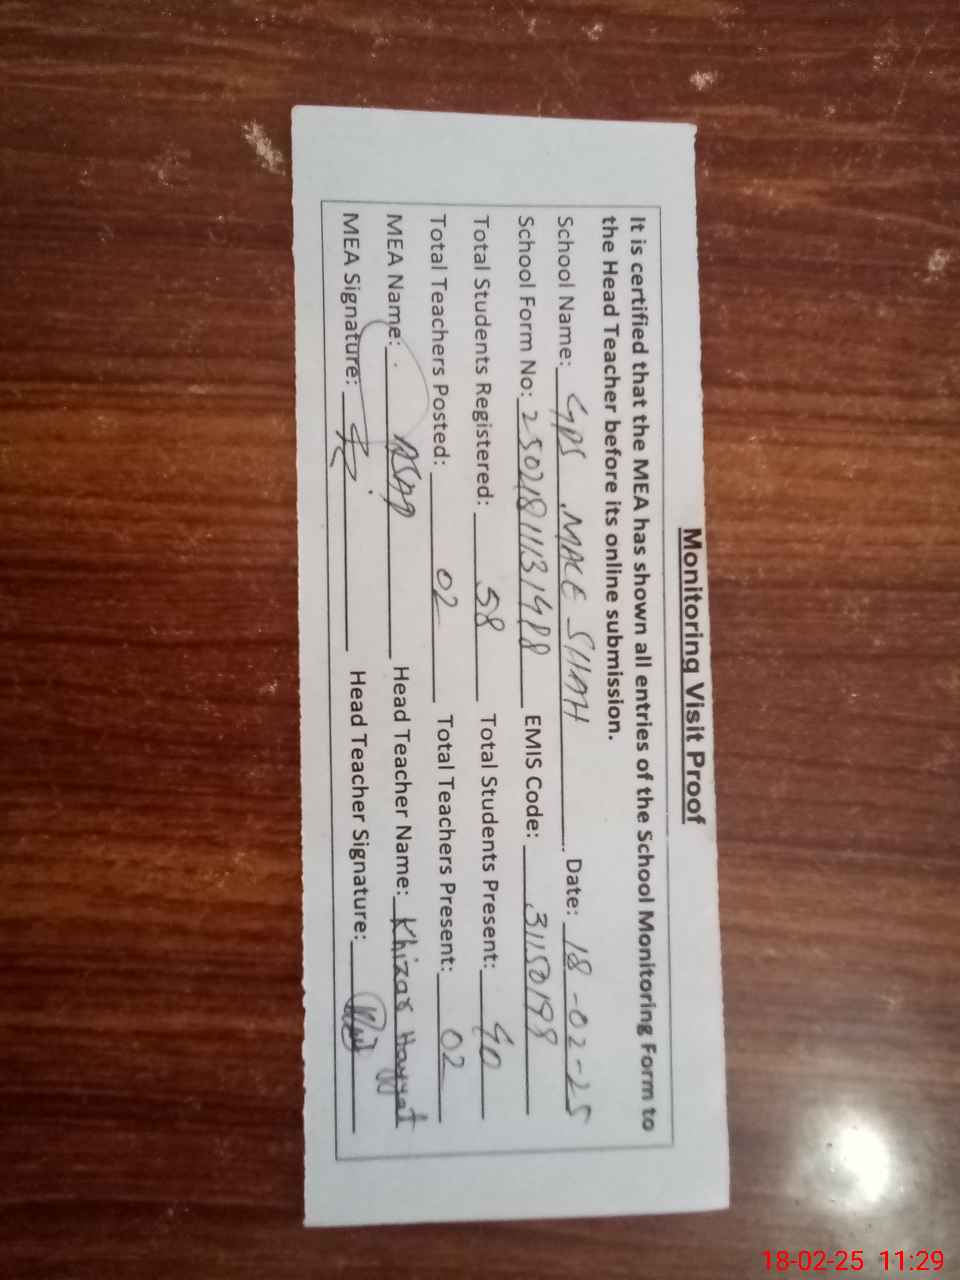 Monitoring Visit Proof
It is certified that the MEA has shown all entries of the School Monitoring Form to
the Head Teacher before its online submission.
School Name: GPS MACE SHAH Date: 18-02-25
School Form No: EMIS Code:
Total Students Registered: 58 Total Students Present:
Total Teachers Posted: 02 Total Teachers Present: 02
MEA Name: ASAD Head Teacher Name: Khizar Hayyat
MEA Signature: Head Teacher Signature:
18-02-25 11:29